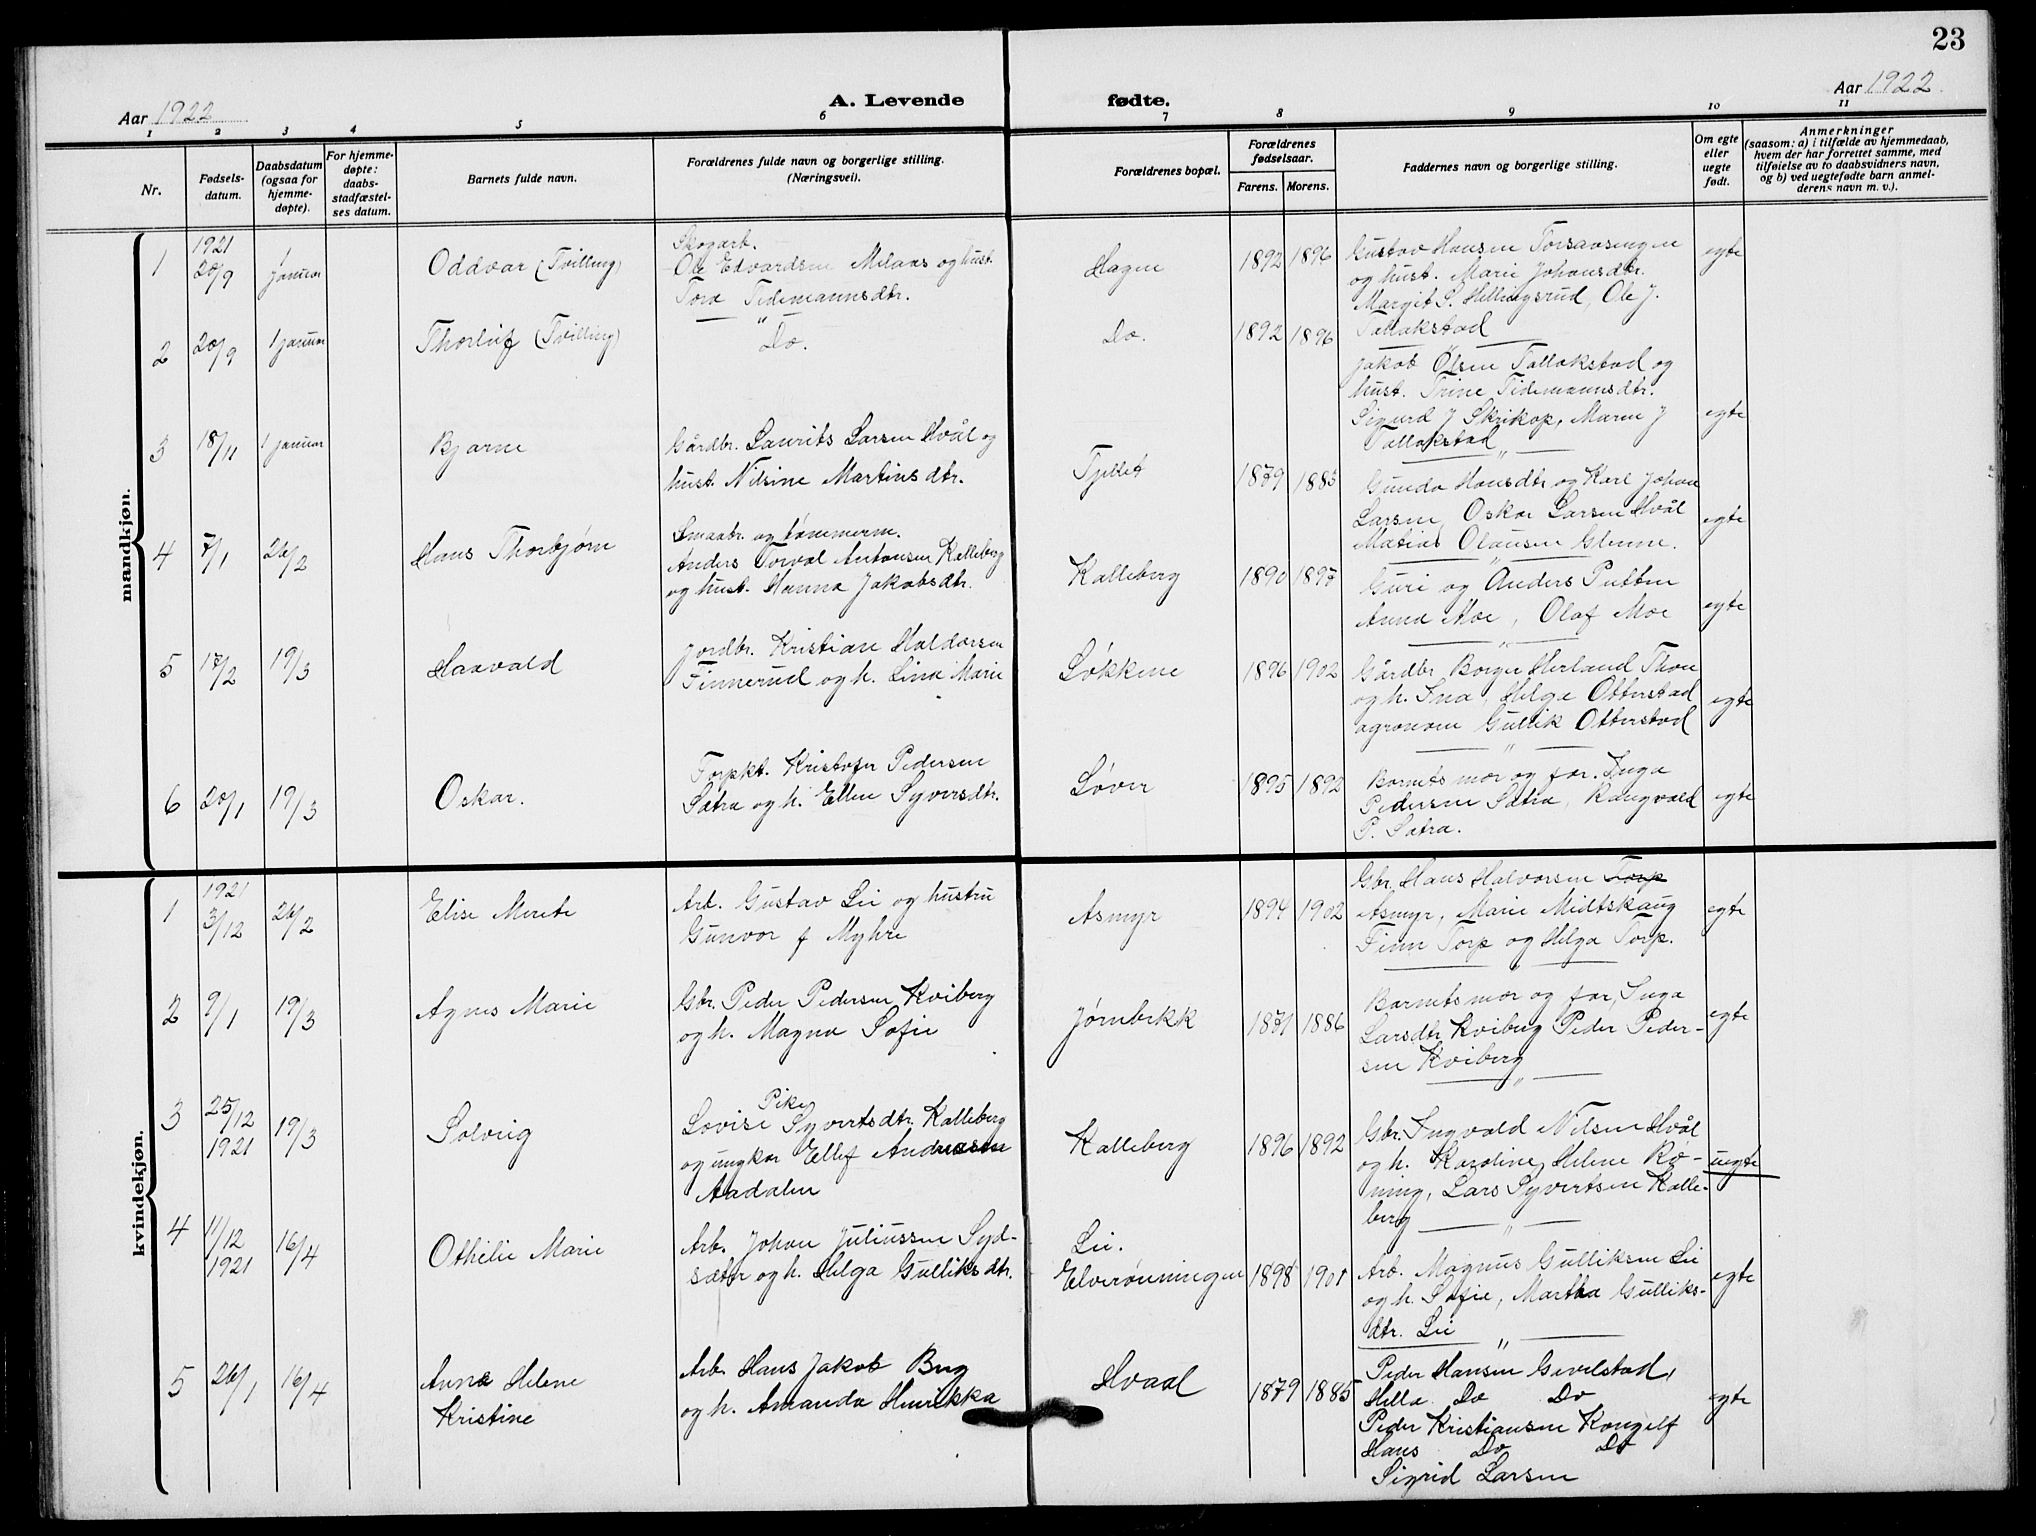 23
Aar 1922
A. Levende fødte.
Aar 1922
1 2 3 4 5 6 7 8 9 10 11
Nr.
Fødsels-
datum.
Daabsdatum
(ogsaa for
hjemme-
døpte).
For hjemme-
døpte:
daabs-
stadfæstel-
ses datum.
Barnets fulde navn.
Forældrenes fulde navn og borgerlige stilling.
(Næringsvei).
Forældrenes bopæl.
Forældrenes
fødselsaar.
Farens. Morens.
Faddernes navn og borgerlige stilling.
Om egte
eller
uegte
født.
Anmerkninger
(saasom: a) i tilfælde av hjemmedaab,
hvem der har forrettet samme, med
tilføielse av to daabsvidners navn,
og b) ved uegtefødte barn anmel-
derens navn m. v.).
mandkjøn.
1
1921
20/9
1
januar
Oddvar (Tvilling)
Skogarb.
Ole Edvardsen Melaas og hust.
Tora Tidemannsdtr.
Hagen
1892 1896
Gustav Hansen
og hust. Marie Johansdtr.
Margit S. Hellingsrud, Ole J.
Tallakstad
egte
2
20/9
1 januar
Thorleif (Tvilling)
Do.
Do.
1892 1896
Jakob Olsen Tallakstad og
hust. Trine Tidemannsdtr.
Sigurd J Skrikop, Maren J
Tallakstad
egte
3
18/11
1 januar
Bjarne
Gårdbr. Laurits Larsen Hvål og
hust. Nilsine Martinsdtr.
Fjellet
1879 1885
Gunda Hansdtr og Karl Johan
Larsen, Oskar Larsen Hvål
Matias Olausen Glenne.
egte
4
7/1
26/2
Hans Thorbjørn
Smaabr. og tømmerm.
Anders Torval Antonsen Kalleberg
og hust. Hanna Jakobsdtr.
Kalleberg
1890 1897
Guri og Anders Putten
Anna Moe, Olaf Moe
egte
5
17/2
19/3
Haavald
Jordbr. Kristian Haldorsen
Finnerud og h. Lina Marie
Løkkene
1896 1902
Gårdbr Borger Herland Thon
og h. Ina, Helge Otterstad
agronom Gullik Otterstad
egte
6
20/1
19/3
Oskar.
Forpkt. Kristofer Pedersen
Sætra og h. Ellen Syversdtr.
Løver
1895 1892
Barnets mor og far. Inga
Pedersen Sætra, Rangvald
P. Sætra.
egte
kvindekjøn.
1
1921
3/12
26/2
Elise Merete
Arb. Gustav Lie og hustru
Gunvor f Myhre
Asmyr
1894 1902
Gbr. Hans Halvorsen Torp
Asmyr, Marie Midtskaug
Finn Torp og Helga Torp.
egte
2
9/1
19/3
Agnes Marie
Gbr. Peder Pedersen Kviberg
og h. Magna Sofie
Jørnbekk
1871 1886
Barnets mor og far, Inga
Larsdtr Kviberg Peder Peder-
sen Kviberg
egte
3
25/12
1921
19/3
Solveig
Pike
Lovise Syvertsdtr. Kalleberg
og ungkar Ellef Andreasen
Aadalen
Kalleberg
1896 1892
Gbr. Ingvald Nilsen Hvål
og h. Karoline, Helene Rø-
ning, Lars Syvertsen Kalle-
berg
uegte
4
11/12
1921
16/4
Othelie Marie
Arb. Johan Juliussen Syd-
sæter og h. Helga Gulliksdtr.
Lie.
Elverønningen
1898 1901
Arb. Magnus Gulliksen Lie
og h. Sofie, Martha Gulliks-
dtr. Lie
egte
5
26/1
16/4
Anna Helene
Kristine
Arb. Hans Jakob Berg
og h. Amanda Henrikka
Hvaal
1879 1885
Peder Hansen Gevelstad,
Hella Do Do
Peder Kristiansen Kongelf
Hans Do Do
Sigrid Larsen
egte